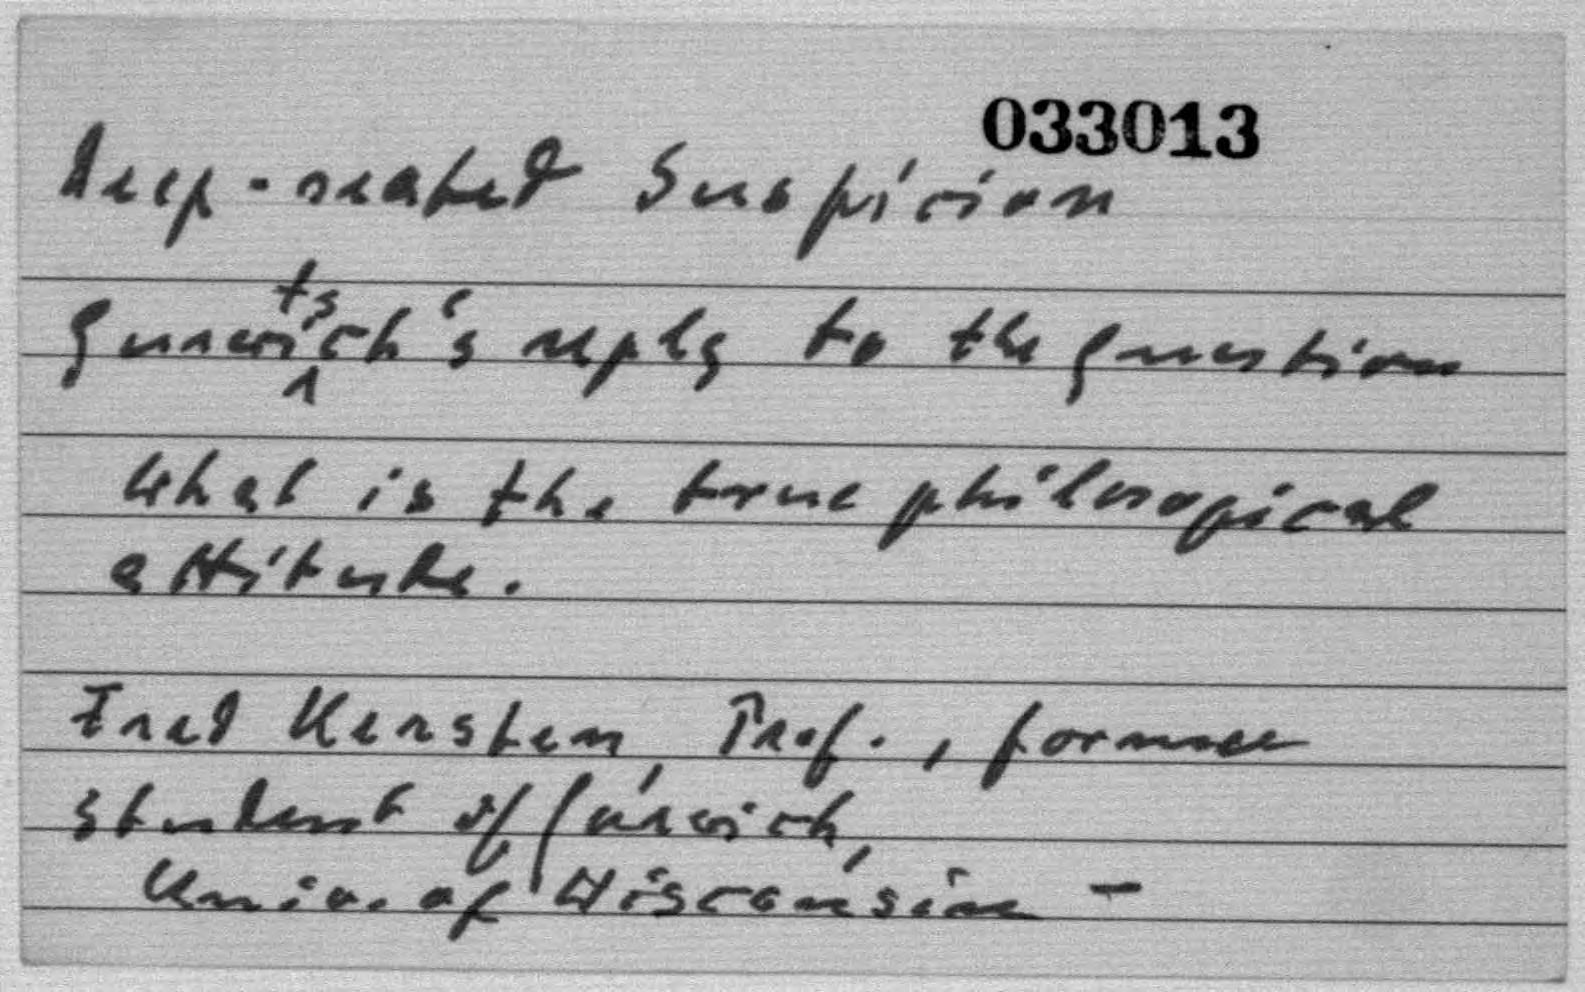 033013
deep-seated Suspicion
Gurwitsch's reply to the question
What is the true philosopical
attitude.
Fred Kersten, Prof., former
student of Gurwich,
Univ. of Wisconsin –